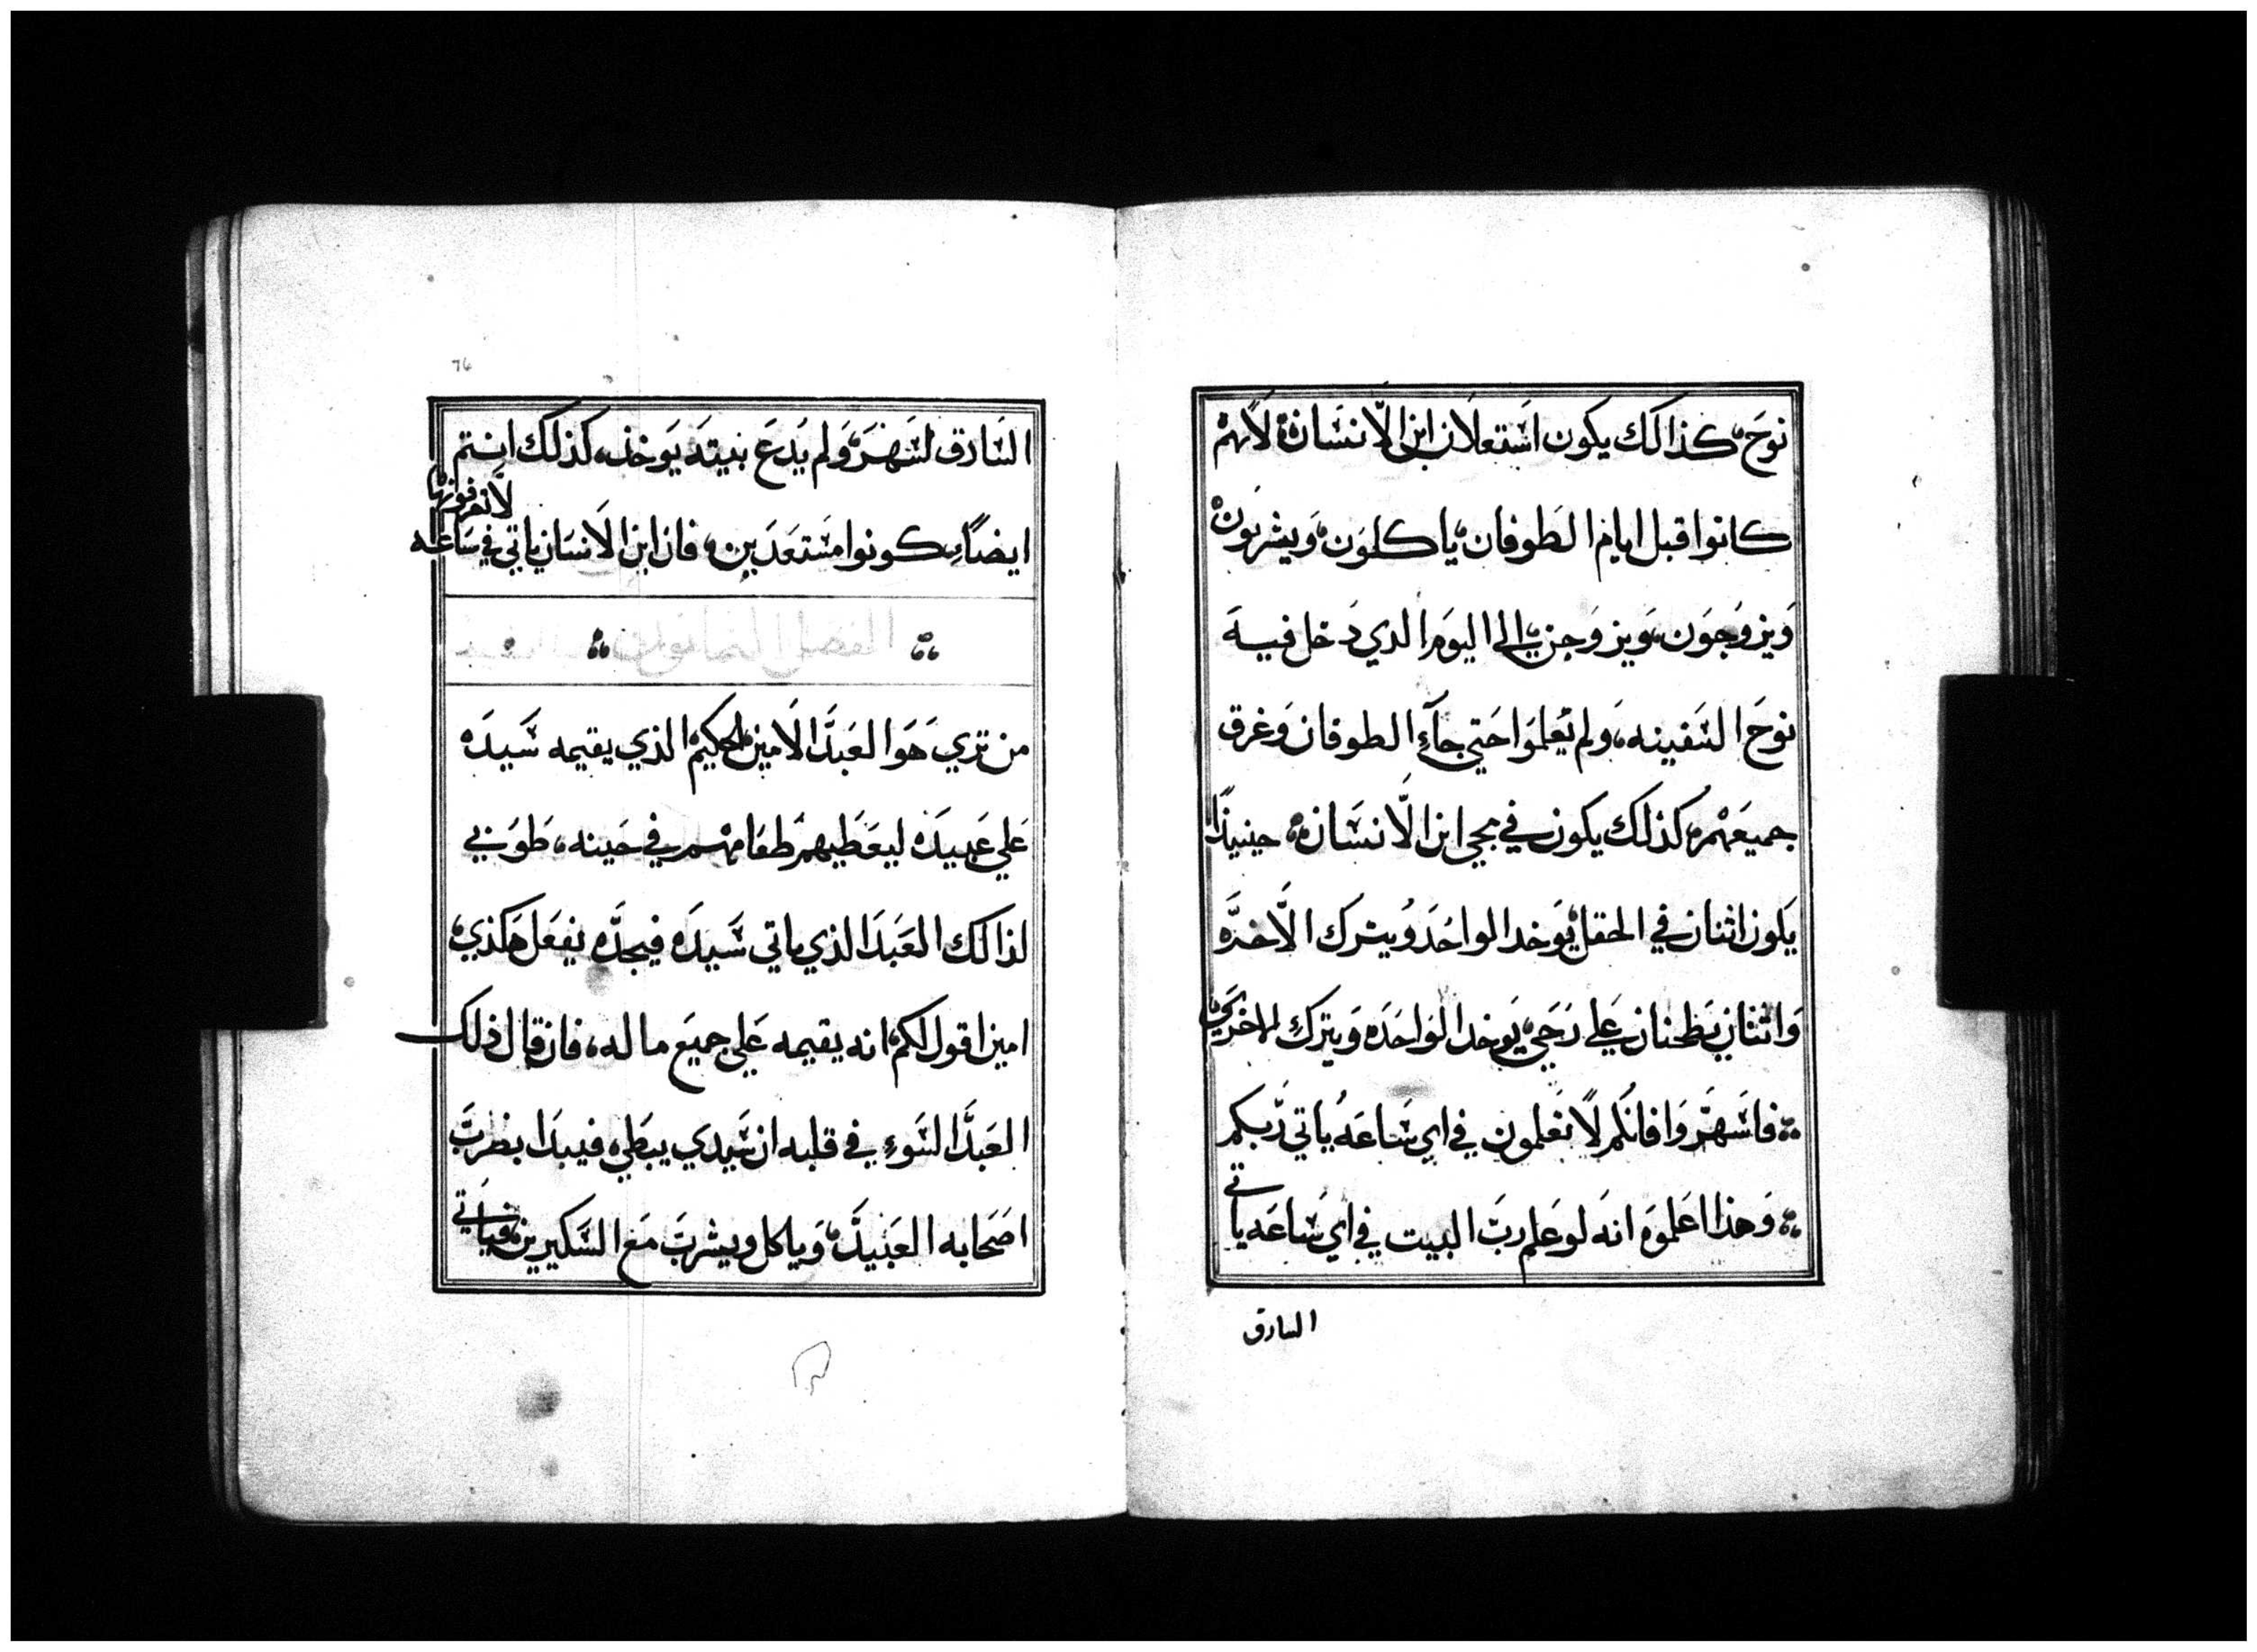 نوحَ كذالك يكون اشتعلان ابن الانسان لانهم
كانوا قبل ايام الطوفان ياكلون ويشربون
ويزوجون ويزوجن الى اليوم الدي دخل فيه
نوح السفينه، ولم يعلموا حتي جآءِ الطوفان وغرق
جميعهم كذلك يكون في مجي ابن الانسان حينيذًا
يكون اثنان في الحقل يوخد الواحد ويترك الاخر
واثنان يطحنان علي رحي يوخد الواحده ويترك الاخري
فاسهروا فانكم لا تعلمون في اي ساعه ياتي ربكم
وهذا اعلموه انه لو علم رب البيت في اي ساعه ياتي
السارق
76
السارق لسهر ولم يدع بيته يوخذ، كذلك انتم
ايضًا كونوا مستعدين فان ابن الانسان ياتي في ساعه
لا تعرفونها
من تري هو العبد الامين الحكيم الذي يقيمه سيده
علي عبيده ليعطيهم طعامهم في حينه، طوبي
لذالك العبد الذي ياتي سيده فيجده يفعل هكذي
امين اقول لكم انه يقيمه علي جميع ما له، فان قال ذلك
العبد السوءِ في قلبه ان سيدي يبطي فيبدا يضرب
اصحابه العبيد وياكل ويشرب مع السكيرين فياتي